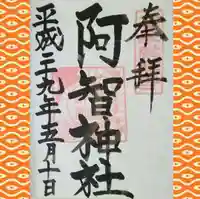 奉拝
阿智神社
平成二十九年五月十日